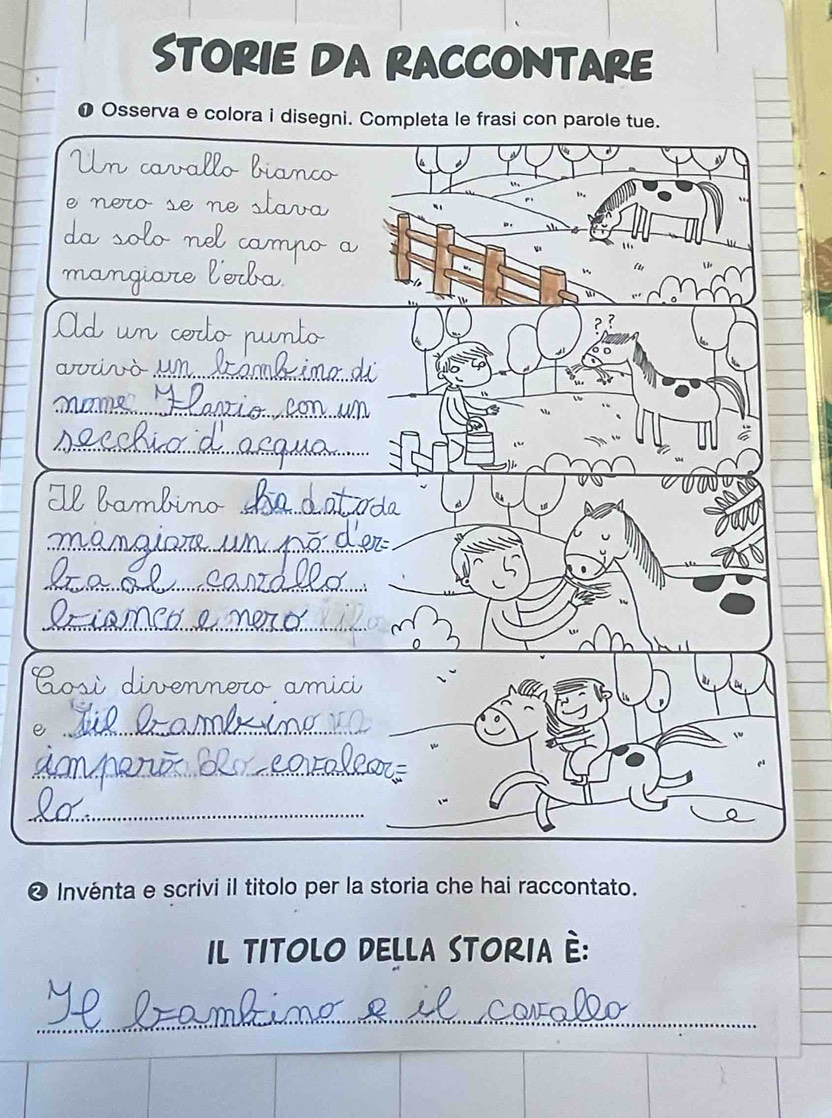 STORIE DA RACCONTARE
1 Osserva e colora i disegni. Completa le frasi con parole tue.
Un cavallo bianco
e nero se ne stava
da solo nel campo a
mangiare l'erba.
Ad un certo punto
arrivò un bambino di
nome Flavio, con un
secchio d'acqua
? ?
Il bambino ha dato da
mangiare un pō d'er=
ba al cavallo
bianco e nero
Così divennero amici
e il bambino
imparò a cavalcar=
lo.
2 Invénta e scrivi il titolo per la storia che hai raccontato.
IL TITOLO DELLA STORIA È:
Il bambino e il cavallo